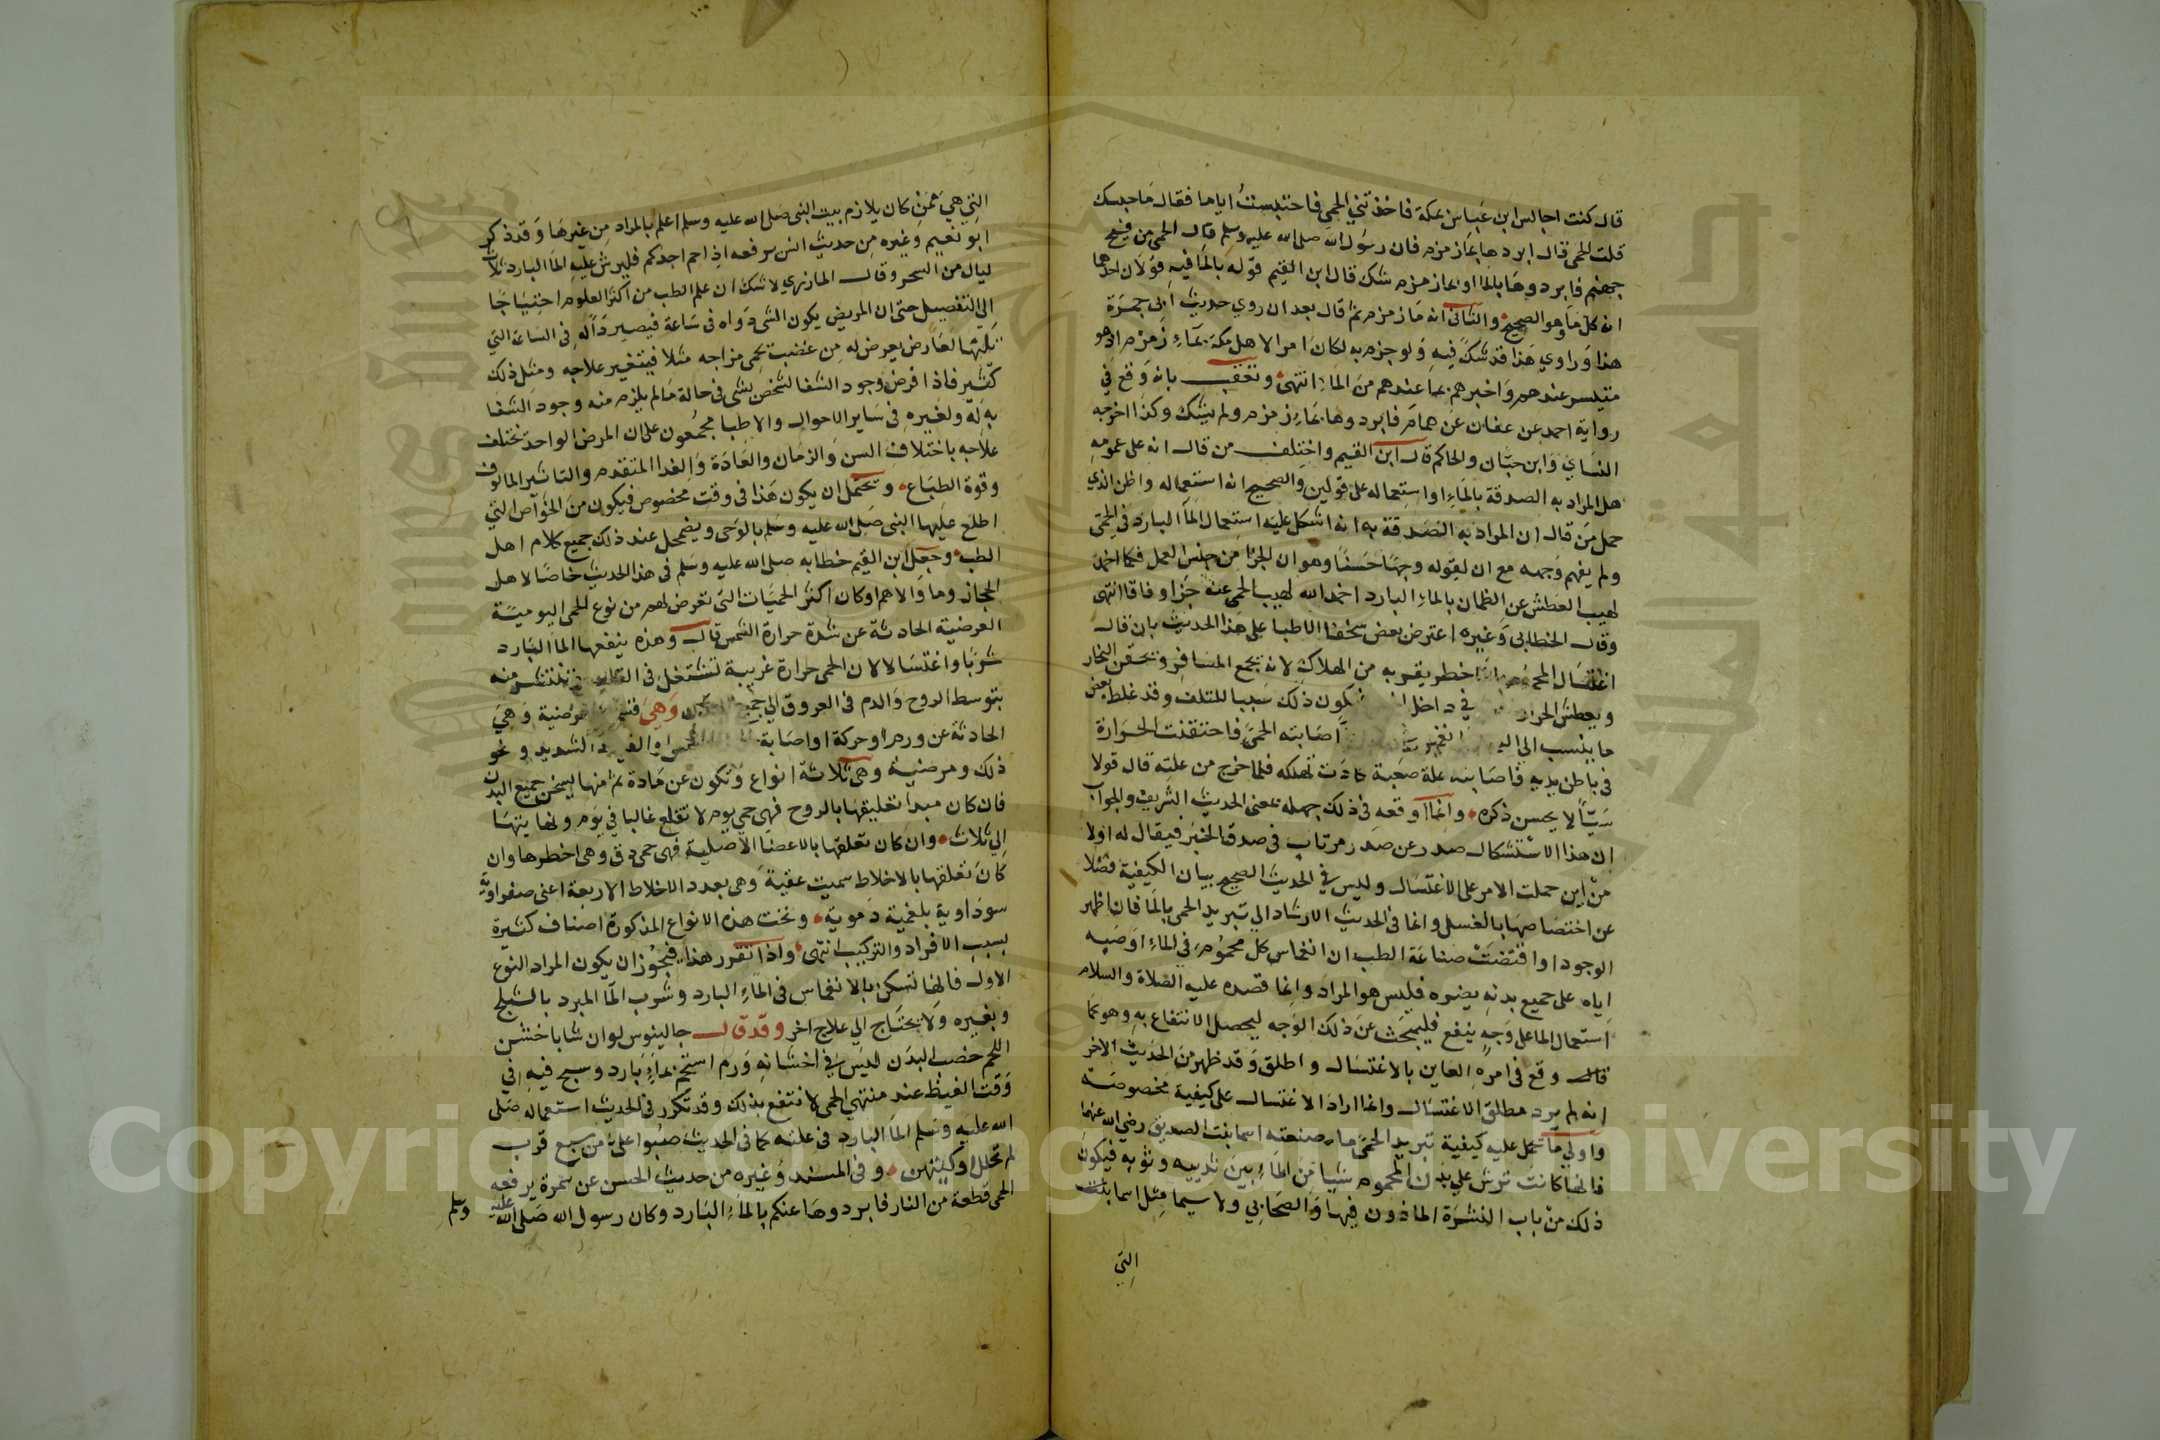 قال كنت اجالس ابن عباس بمكة فاخذتني الحمى فاحتبست اياما فقال ما حبسك
قلت الحمى قال ابردها بماء زمزم فان رسول الله صلى الله عليه وسلم قال الحمى من فيح
جهنم فابردوها بالماء او بماء زمزم شك قال ابن القيم قوله بالماء فيه قولان احدهما
انه كل ماء وهو الصحيح والثاني انه ماء زمزم ثم قال بعد ان روي حديث ابي جمرة
هذا وراوي هذا قد شك فيه ولو جزم به لكان امرا لاهل مكة بماء زمزم اذ هو
متيسر عندهم واخبرهم بما عندهم من الماء انتهى وتعقب بانه وقع في
رواية احمد عن عفان عن همام فابردوها بماء زمزم ولم يشك وكذا اخرجه
النساي وابن حبان والحاكم قال ابن القيم واختلف من قال انه على عمومه
هل المراد به الصدقة بالماء او استعماله على قولين والصحيح انه استعماله واظن الذي
حمل من قال ان المراد به الصدقة به انه اشكل عليه استعمال الماء البارد في الحمى
ولم يفهم وجهه مع ان لقوله وجها حسنا وهو ان الجزا من جنس العمل فكما اخمد
لهيب العطش عن الظمان بالماء البارد اخمد الله لهيب الحمى عنه جزا وفاقا انتهى
وقال الخطابي وغيره اعترض بعض سخفا الاطبا على هذا الحديث بان قال
اغتسال المحموم بالماء خطر يقربه من الهلاك لانه يجمع المسام ويحقن البخار
ويعكس الحرارة في داخل فيكون ذلك سببا للتلف وقد غلط بعض
ما ينسب الى اصابته الحمى فاحتقنت الحرارة
في باطن بدنه فاصابته علة صعبة كادت تهلكه فلما خرج من علته قال قولا
سيئا لا يحسن ذكره وانما اوقعه في ذلك جهله بمعنى الحديث الشريف والجواب
ان هذا الاستشكال صدر عن صدر مرتاب في صدق الخبر فيقال له اولا
من اين حملت الامر على الاغتسال وليس في الحديث الصحيح بيان الكيفية فضلا
عن اختصاصها بالغسل وانما في الحديث الارشاد الى تبريد الحمى بالماء فان اظهر
الوجود او اقتضت صناعة الطب ان انغماس كل محموم في الماء او صبه
اياه على جميع بدنه يضره فليس هو المراد وانما قصده عليه الصلاة والسلام
استعمال الماء على وجه ينفع فليبحث عن ذلك الوجه ليحصل الانتفاع به وهو كما
قال وقع في امره العاين بالاغتسال واطلق وقد ظهر من الحديث الاخر
انه لم يرد مطلق الاغتسال وانما اراد الاغتسال على كيفية مخصوصة
واولى ما تحمل عليه كيفية تبريد الحمى ما صنعته اسما بنت الصديق رضي الله عنهما
فانها كانت ترش على بدن المحموم شيا من الماء بين ثدييه وثوبه فيكون
ذلك من باب النشرة الماذون فيها والصحابي ولا سيما مثل اسما بنت
التي
التي هي ممن كان يلازم بيت النبي صلى الله عليه وسلم اعلم بالمراد من غيرها وقد ذكر
ابو نعيم وغيره من حديث انس يرفعه اذا حم احدكم فليرش عليه الماء البارد ثلاث
ليال من السحر وقال المازري لا شك ان علم الطب من اكثر العلوم احتياجا
الى التفصيل حتى ان المريض يكون الشي دواه في ساعة فيصير داء له في الساعة التي
تليها لعارض يعرض له من غضب يحمي مزاجه مثلا فيتغير علاجه ومثل ذلك
كثير فاذا فرض وجود الشفا لشخص بشي في حالة ما لم يلزم منه وجود الشفا
به له ولغيره في ساير الاحوال والاطبا مجمعون على ان المرض الواحد يختلف
علاجه باختلاف السن والزمان والعادة والغدا المتقدم والتاثير المالوف
وقوة الطباع ويحتمل ان يكون هذا في وقت مخصوص فيكون من الخواص التي
اطلع عليها النبي صلى الله عليه وسلم بالوحي ويضمحل عند ذلك جميع كلام اهل
الطب وجعل ابن القيم خطابه صلى الله عليه وسلم في هذا الحديث خاصا لاهل
الحجاز وما والاهم اذ كان اكثر الحميات التي تعرض لهم من نوع الحمى اليومية
العرضية الحادثة عن شدة حرارة الشمس قال وهذه ينفعها الماء البارد
شربا واغتسالا لان الحمى حرارة غريبة تشتعل في القلب فتنتشر منه
بتوسط الروح والدم في العروق الى جميع البدن وهي عرضية وهي
الحادثة عن ورم او حركة او اصابة الشمس او القيظ الشديد ونحو
ذلك ومرضية وهي ثلاثة انواع وتكون عن مادة ثم منها يسخن جميع البدن
فان كان مبدا تعليقها بالروح فهي حمى يوم لا تقلع غالبا في يوم ونهايتها
الى ثلاث وان كان تعلقها بالاعضا الاصلية فهي حمى دق وهي اخطرها وان
كان تعلقها بالاخلاط سميت عفنية وهي بعدد الاخلاط الاربعة اعني صفراوية
سوداوية بلغمية دموية وتحت هذه الانواع المذكورة اصناف كثيرة
بسبب الافراد والتركيب انتهى واذا تقرر هذا فيجوز ان يكون المراد النوع
الاول فانها تسكن بالانغماس في الماء البارد وشرب الماء المبرد بالثلج
وبغيره ولا يحتاج الى علاج اخر وقد قال جالينوس لو ان شابا خشن
اللحم خصب البدن ليس في احشائه ورم استحم بماء بارد وسبح فيه في
وقت القيظ عند منتهى الحمى لانتفع بذلك وقد تكرر في الحديث استعماله صلى
الله عليه وسلم الماء البارد في علته كما في الحديث صبوا علي من سبع قرب
لم تحلل اوكيتهن وفي المسند وغيره من حديث الحسن عن سمرة يرفعه
الحمى قطعة من النار فابردوها عنكم بالماء البارد وكان رسول الله صلى الله عليه وسلم
Copyright © King Saud University